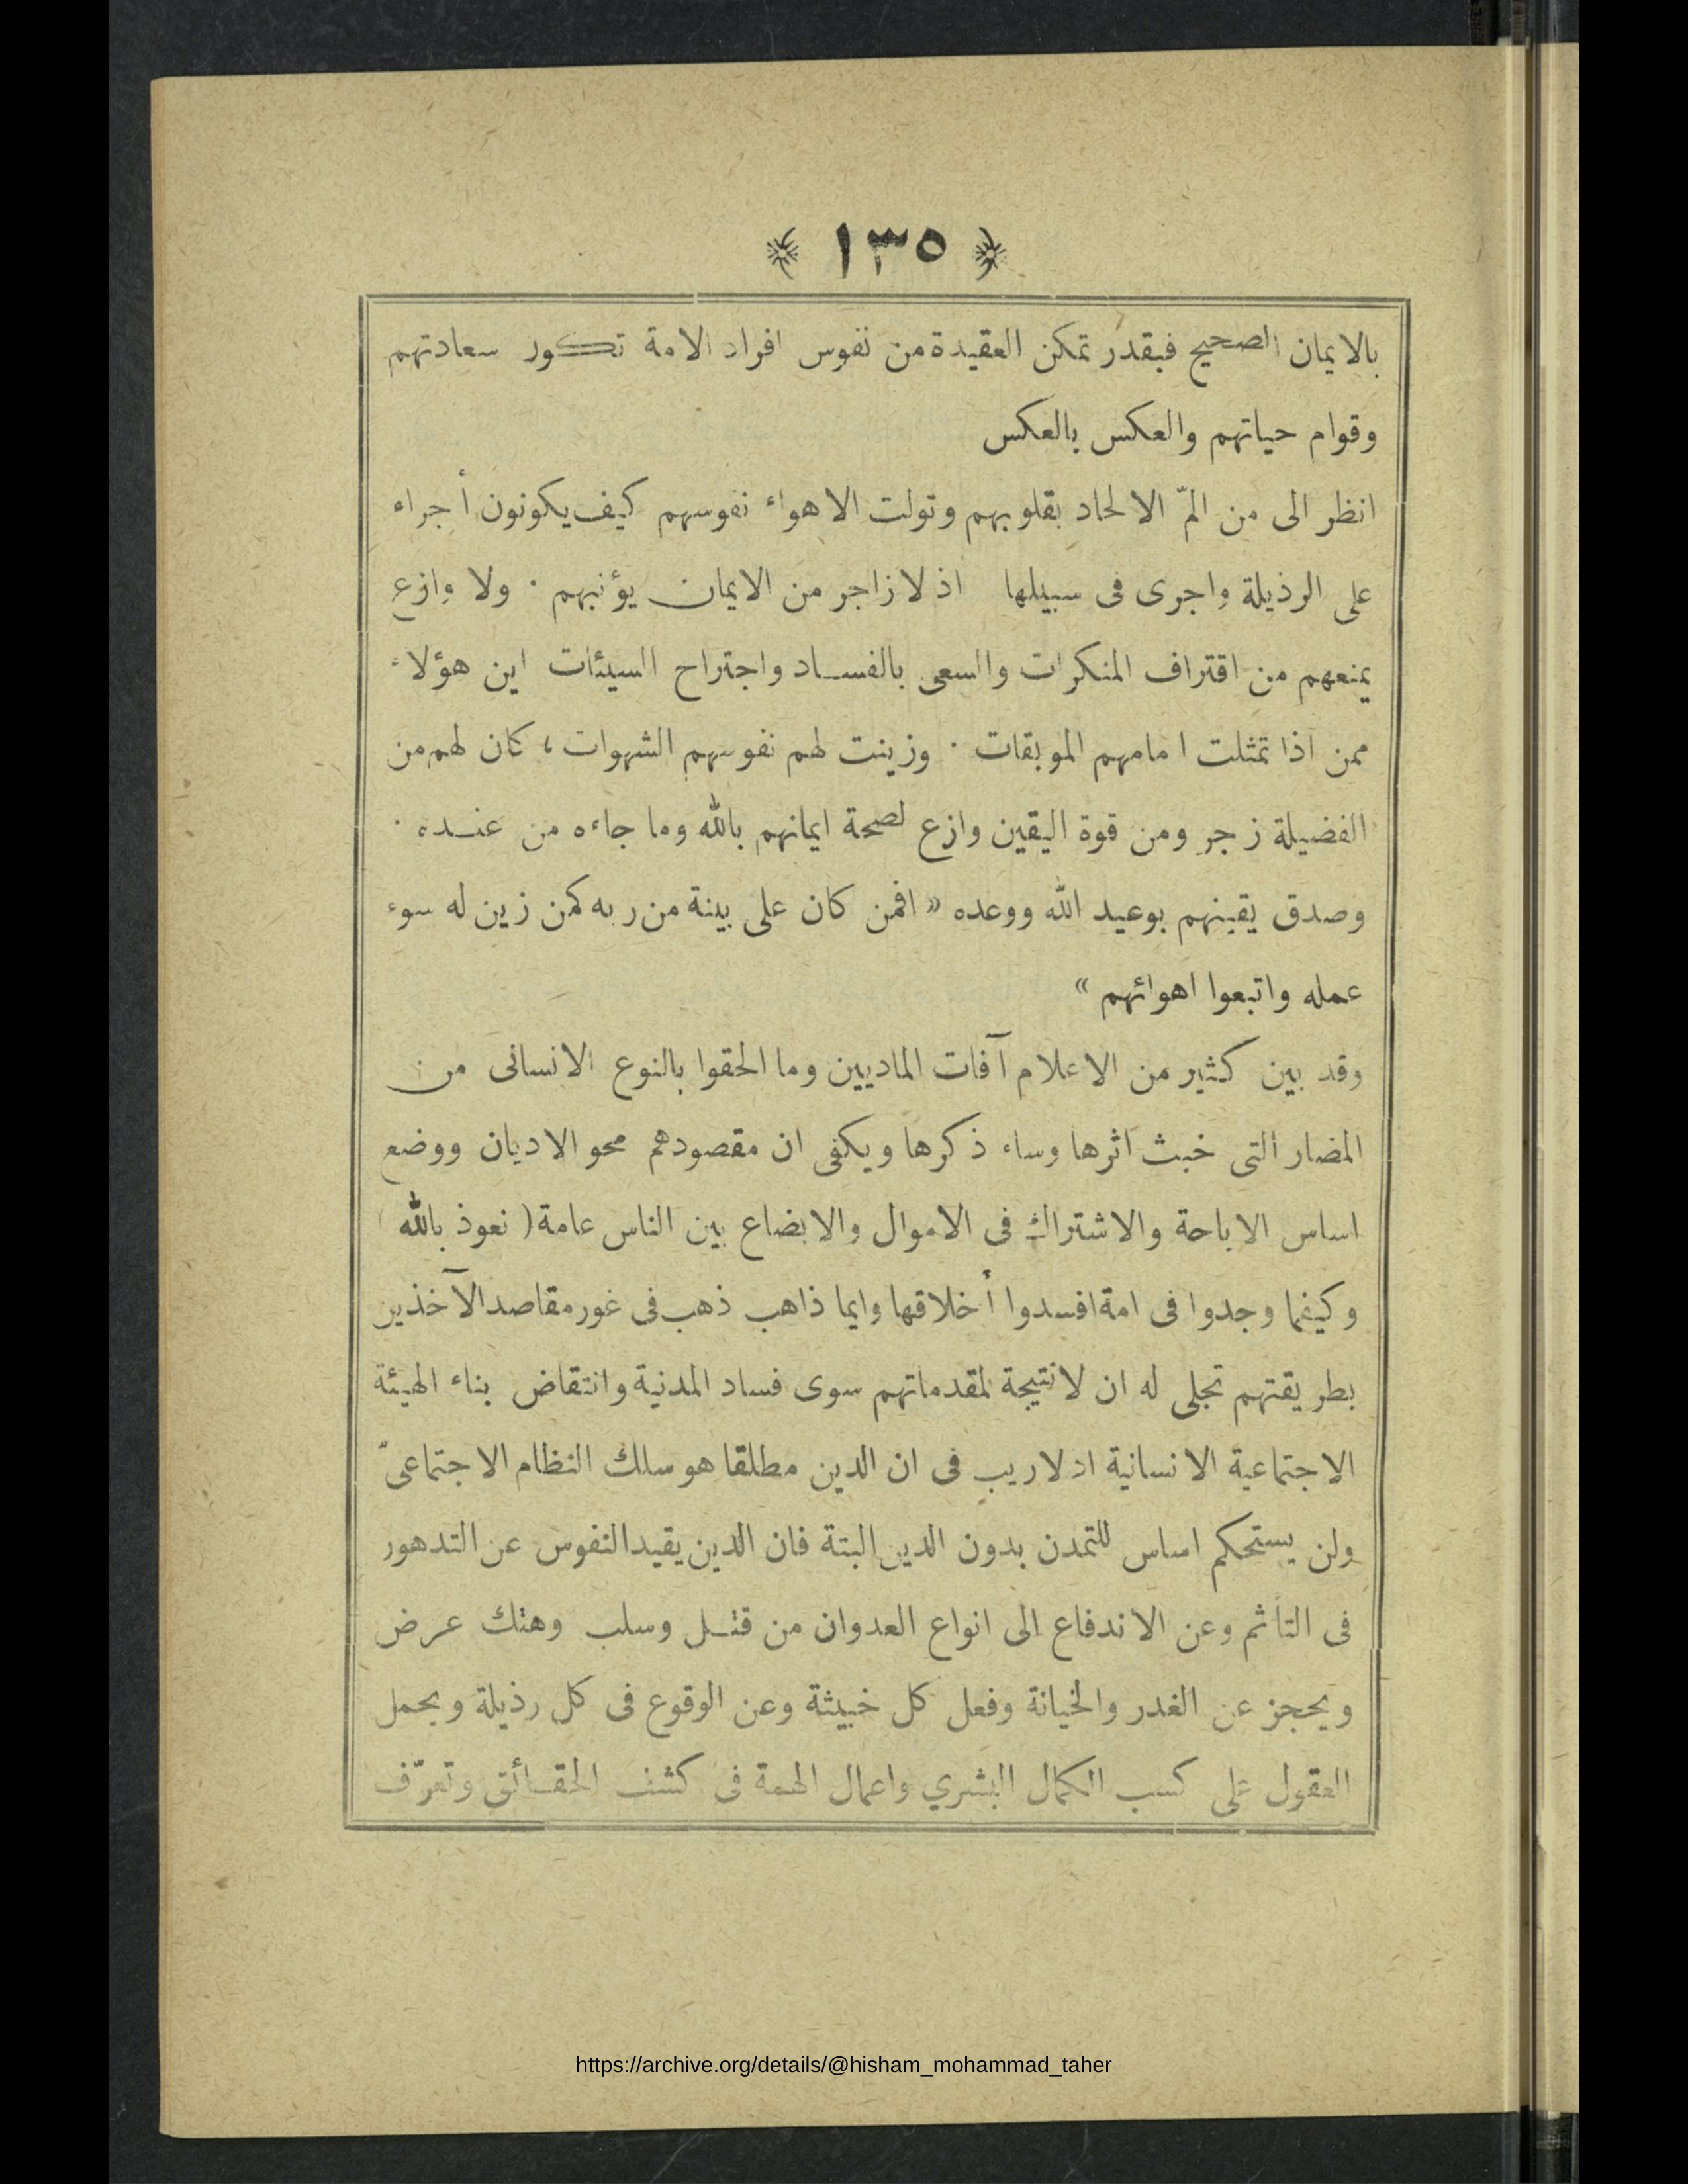 ﴿ ١٣٥ ﴾
بالايمان الصحيح فبقدر تمكن العقيدة من نفوس افراد الامة تكور سعادتهم
وقوام حياتهم والعكس بالعكس
انظر الى من المّ الالحاد بقلوبهم وتولت الاهواء نفوسهم كيف يكونون أجراء
على الرذيلة واجرى فى سبيلها اذ لا زاجر من الايمان يؤنبهم ٠ ولا وازع
يمنعهم من اقتراف المنكرات والسعى بالفساد واجتراح السيئات اين هؤلاء
ممن اذا تمثلت امامهم الموبقات ٠ وزينت لهم نفوسهم الشهوات ، كان لهم من
الفضيلة زجر ومن قوة اليقين وازع لصحة ايمانهم بالله وما جاءه من عنده ٠
وصدق يقينهم بوعيد الله ووعده « افمن كان على بينة من ربه كمن زين له سوء
عمله واتبعوا اهوائهم »
وقد بين كثير من الاعلام آفات الماديين وما الحقوا بالنوع الانسانى من
المضار التى خبث اثرها وساء ذكرها ويكفى ان مقصودهم محو الاديان ووضع
اساس الاباحة والاشتراك فى الاموال والابضاع بين الناس عامة ( نعوذ بالله )
وكيفما وجدوا فى امة افسدوا أخلاقها وايما ذاهب ذهب فى غور مقاصد الآخذين
بطريقتهم تجلى له ان لا نتيجة لمقدماتهم سوى فساد المدنية وانتقاض بناء الهيئة
الاجتماعية الانسانية اذ لا ريب فى ان الدين مطلقا هو سلك النظام الاجتماعىّ
ولن يستحكم اساس للتمدن بدون الدين البتة فان الدين يقيد النفوس عن التدهور
فى التأثم وعن الاندفاع الى انواع العدوان من قتل وسلب وهتك عرض
ويحجز عن الغدر والخيانة وفعل كل خبيثة وعن الوقوع فى كل رذيلة ويحمل
العقول على كسب الكمال البشري واعمال الهمة فى كشف الحقائق وتعرّف
https://archive.org/details/@hisham_mohammad_taher